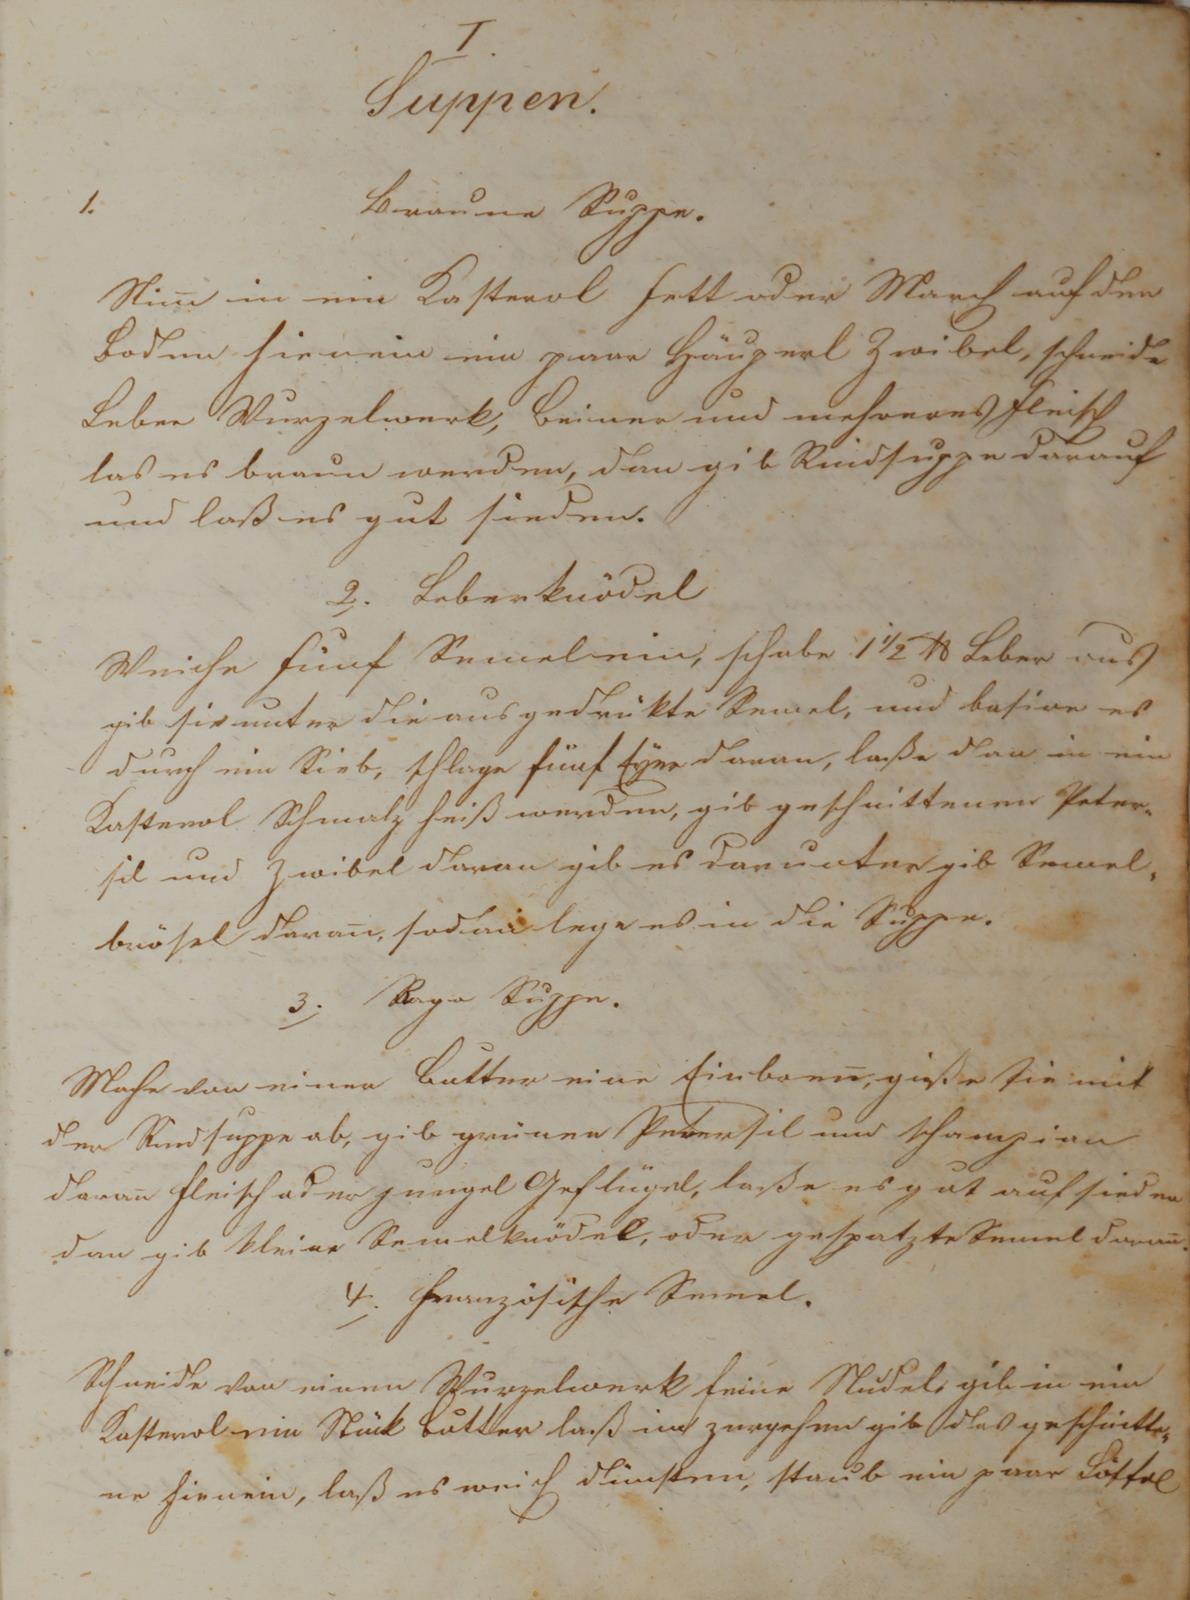 I.
Suppen.
1. Braune Suppe.
Nim̄ in ein Kasterol Fett oder March auf den
Boden hienein ein paar Häuperl Zwibel, schneide
Leber Wurzelwerk, Beiner und mehreres Fleisch
las es braun werden, dan gib Rindsuppe darauf
und laß es gut sieden.
2. Leberknödel
Weiche fünf Semel ein, schabe 1 1/2 ℔ Leber aus
gib sie unter die ausgedrükte Semel, und basire es
durch ein Sieb, schlage fünf Eÿer daran, laße dan in ein
Kasterol Schmalz heiß werden, gib geschnittenen Peter-
sil und Zwibel daran gib es darunter gib Semel-
brösel daran̄, sodan̄ lege es in die Suppe.
3. Rago Suppe.
Mache von einer Butter eine Einbren̄, giße sie mit
der Rindsuppe ab, gib grünen Petersil und schampian
daran̄ Fleisch oder jungel Geflügel, laße es gut aufsieden
dan gib kleine Semelknödel, oder gespatzte Semel daran̄.
4. Französische Semel.
Schneide von einem Wurzelwerk feine Nudel, gib in ein
Kasterol ein Stük Butter laß im zergehen gib das geschnitte-
ne hienein, laß es weich dünsten, staub ein paar Löffel